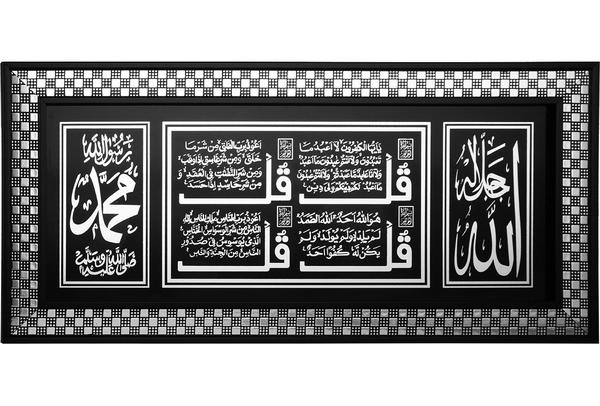 جل جلاله
الله
قل
يايها الكفرون لا اعبد ما
تعبدون ولا انتم عبدون ما اعبد
ولا انا عابد ما عبدتم ولا انتم عبدون
ما اعبد لكم دينكم ولي دين
قل
اعوذ برب الفلق من شر ما
خلق ومن شر غاسق اذا وقب
ومن شر النفثت في العقد
ومن شر حاسد اذا حسد
قل
هو الله احد الله الصمد
لم يلد ولم يولد ولم
يكن له كفوا احد
قل
اعوذ برب الناس ملك الناس اله
الناس من شر الوسواس الخناس
الذي يوسوس في صدور
الناس من الجنة والناس
رسول الله
محمد
صلى الله عليه وسلم